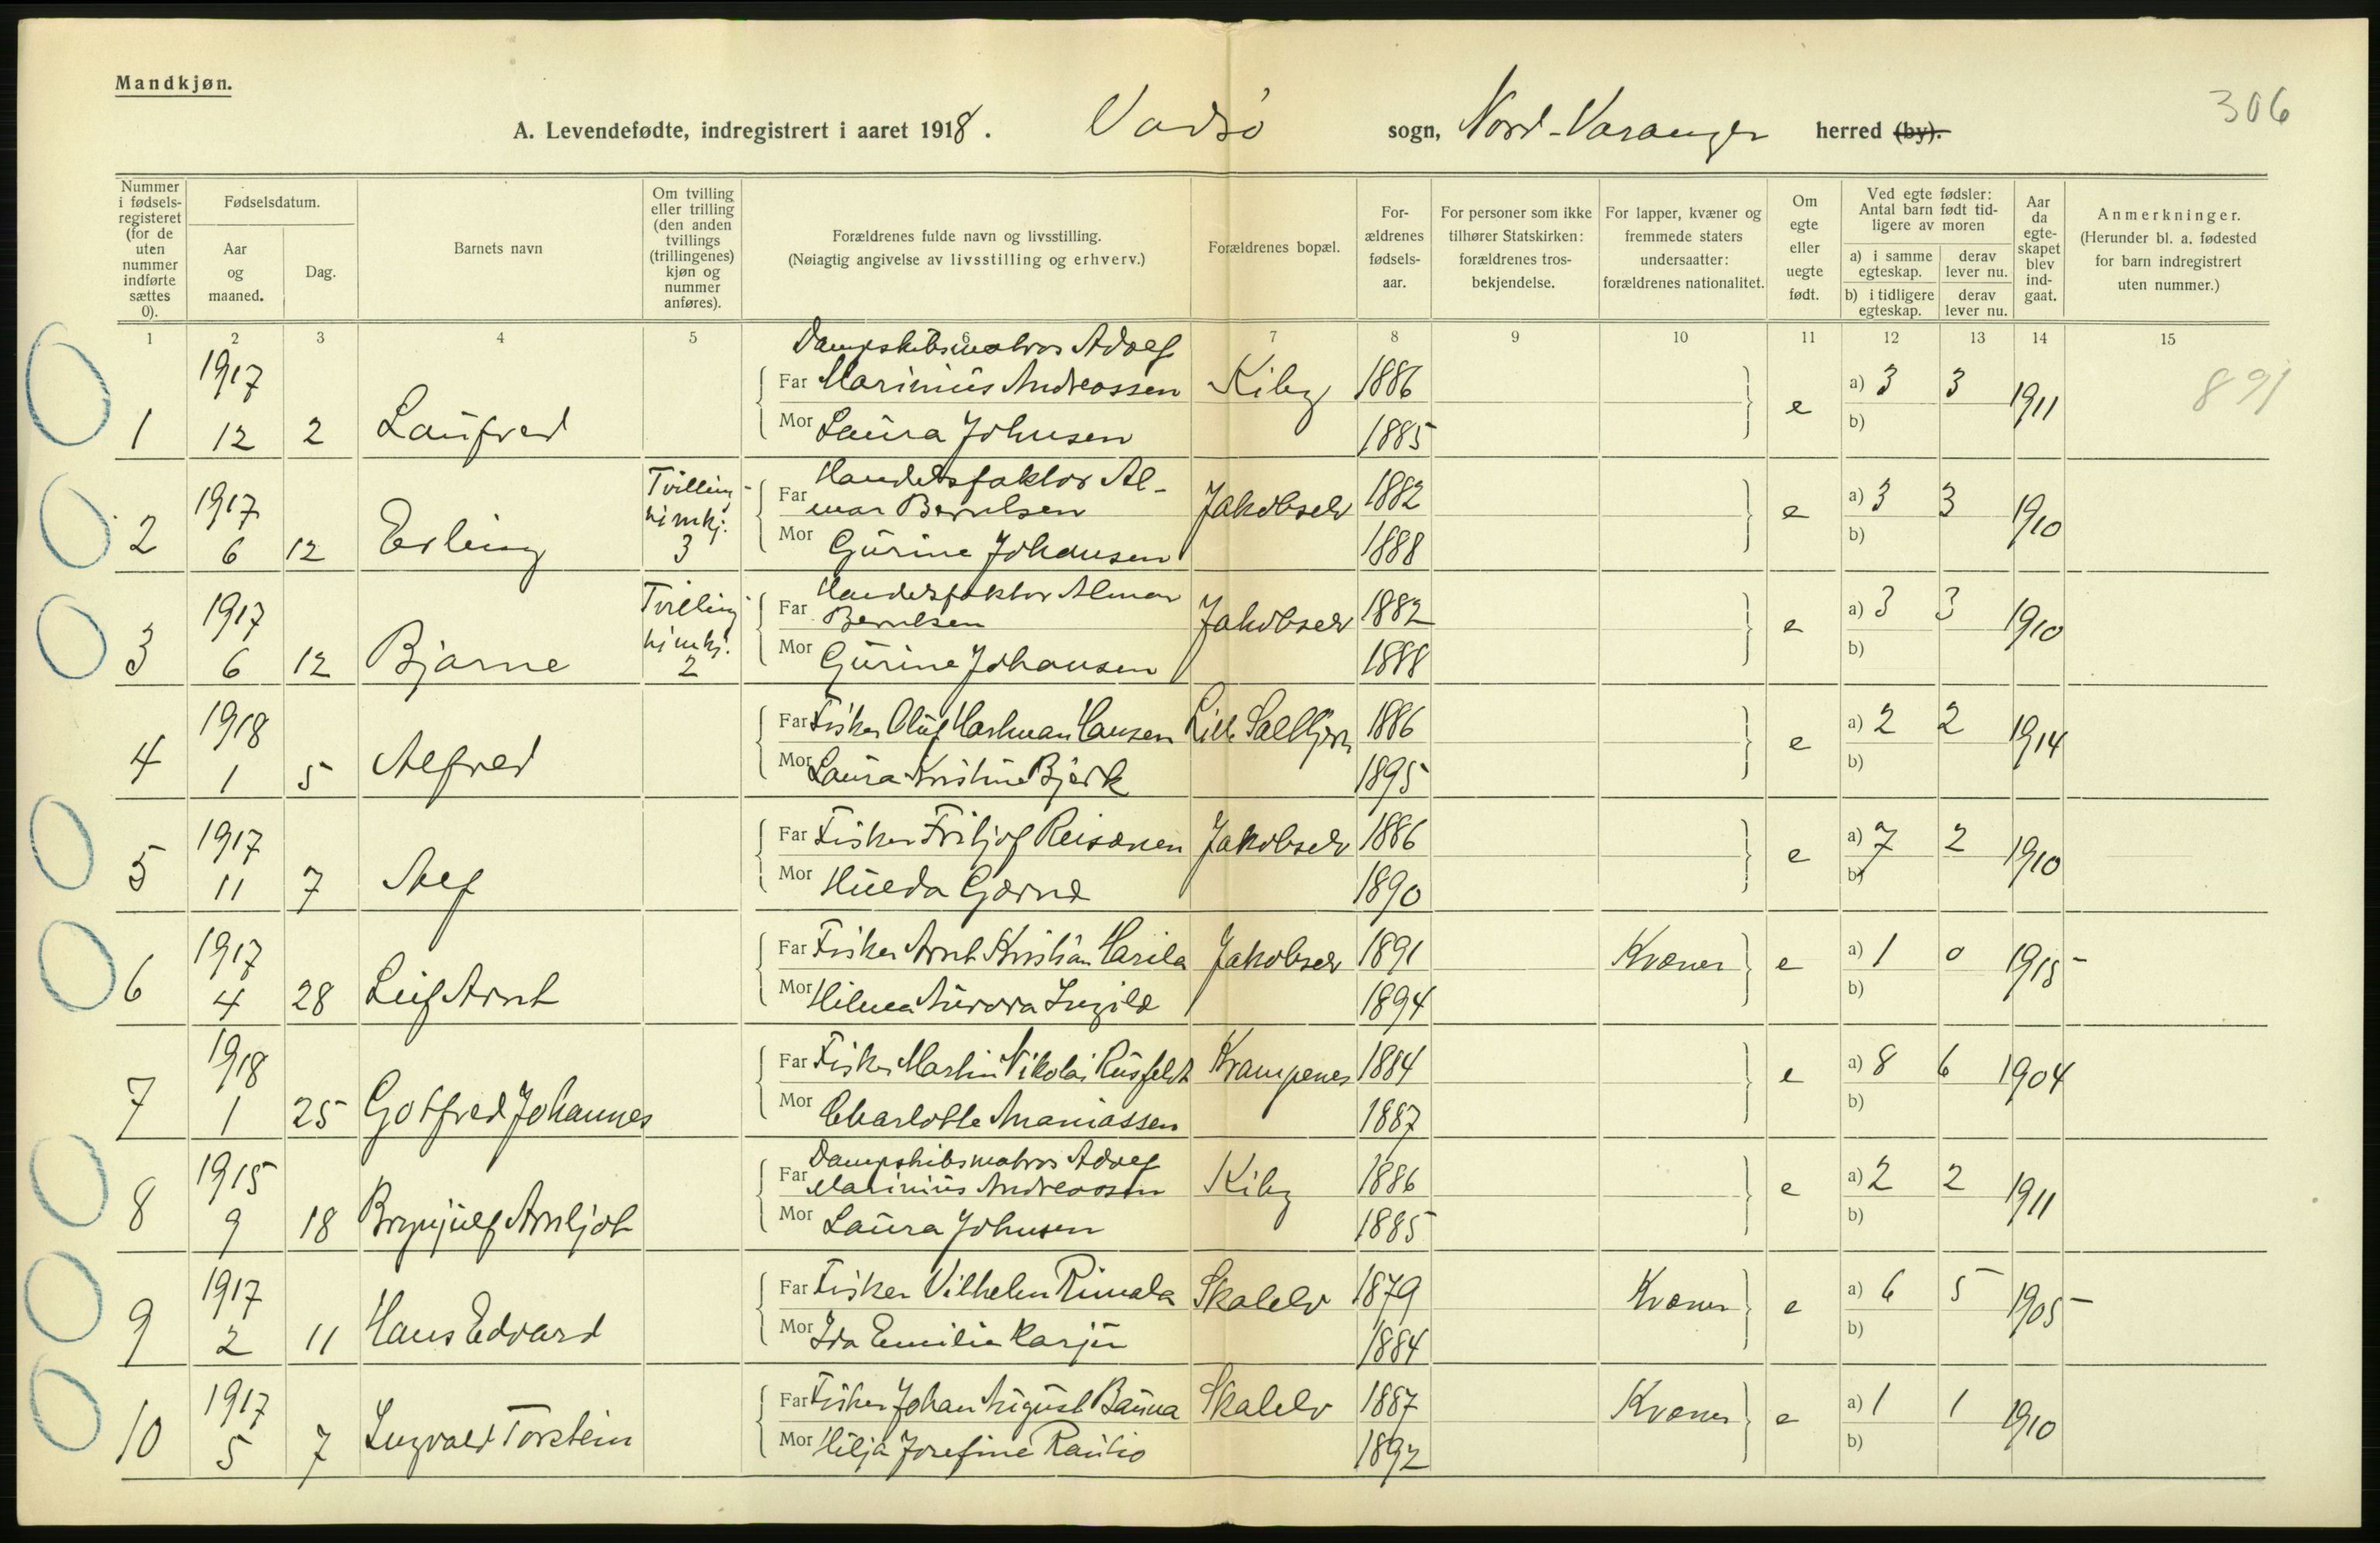 Mandkjøn.
306
A. Levendefødte, indregistrert i aaret 1918. Vadsø sogn, Nord-Varanger herred (by).
Nummer i fødsels-registeret (for de uten nummer indførte sættes 0).
Fødselsdatum.
Aar og maaned.
Dag.
Barnets navn
Om tvilling eller trilling (den anden tvillings (trillingenes) kjøn og nummer anføres).
Forældrenes fulde navn og livsstilling.
(Nøiagtig angivelse av livsstilling og erhverv.)
Forældrenes bopæl.
For-ældrenes fødsels-aar.
For personer som ikke tilhører Statskirken: forældrenes tros-bekjendelse.
For lapper, kvæner og fremmede staters undersaatter: forældrenes nationalitet.
Om egte eller uegte født.
Ved egte fødsler: Antal barn født tid-ligere av moren
a) i samme egteskap. derav lever nu.
b) i tidligere egteskap. derav lever nu.
Aar da egte-skapet blev ind-gaat.
Anmerkninger.
(Herunder bl. a. fødested for barn indregistrert uten nummer.)
1 2 3 4 5 6 7 8 9 10 11 12 13 14 15
Dampskibsmatros Adolf
1917 Far Marinius Andreassen Kiby 1886 a) 3 3 891
1 12 2 Laufred Mor Laura Johnsen 1885 e b) 1911
1917 Tvilling Far Handelsfaktor Al-
mar Berntsen Jakobselv 1882 a) 3 3
2 6 12 Erling 3 Mor Gurine Johansen 1888 e b) 1910
1917 Tvilling Far Handelsfaktor Almar
Berntsen Jakobselv 1882 a) 3 3
3 6 12 Bjarne 2 Mor Gurine Johansen 1888 e b) 1910
1918 Far Fisker Oluf Hartman Hansen Lille 1886 a) 2 2
4 1 5 Alfred Mor Laura Kristine Bjørk 1895 e b) 1914
1917 Far Fisker Fritjof Reisænen Jakobselv 1886 a) 7 2
5 11 7 Alf Mor Hulda 1890 e b) 1910
1917 Far Fisker Arnt Kristian Harila Jakobselv 1891 Kvæner a) 1 0
6 4 28 Leif Arnt Mor Hilma Aurora 1894 e b) 1915
1918 Far Fisker Martin Nikolai Rusfeldt Krampenes 1884 a) 8 6
7 1 25 Gotfred Johannes Mor Charlotte Ananiassen 1887 e b) 1904
1915 Dampskibsmatros Adolf
Far Marinius Andreassen Kiby 1886 a) 2 2
8 9 18 Brynjulf Arnljot Mor Laura Johnsen 1885 e b) 1911
1917 Far Fisker Vilhelm Rimala Skalelv 1879 Kvæner a) 6 5
9 2 11 Hans Edvard Mor Ida Emilie Karjin 1884 e b) 1905
1917 Far Fisker Johan August Bauna Skalelv 1887 Kvæner a) 1 1
10 5 7 Ingvald Torstein Mor Hilja Josefine Rautio 1892 e b) 1910